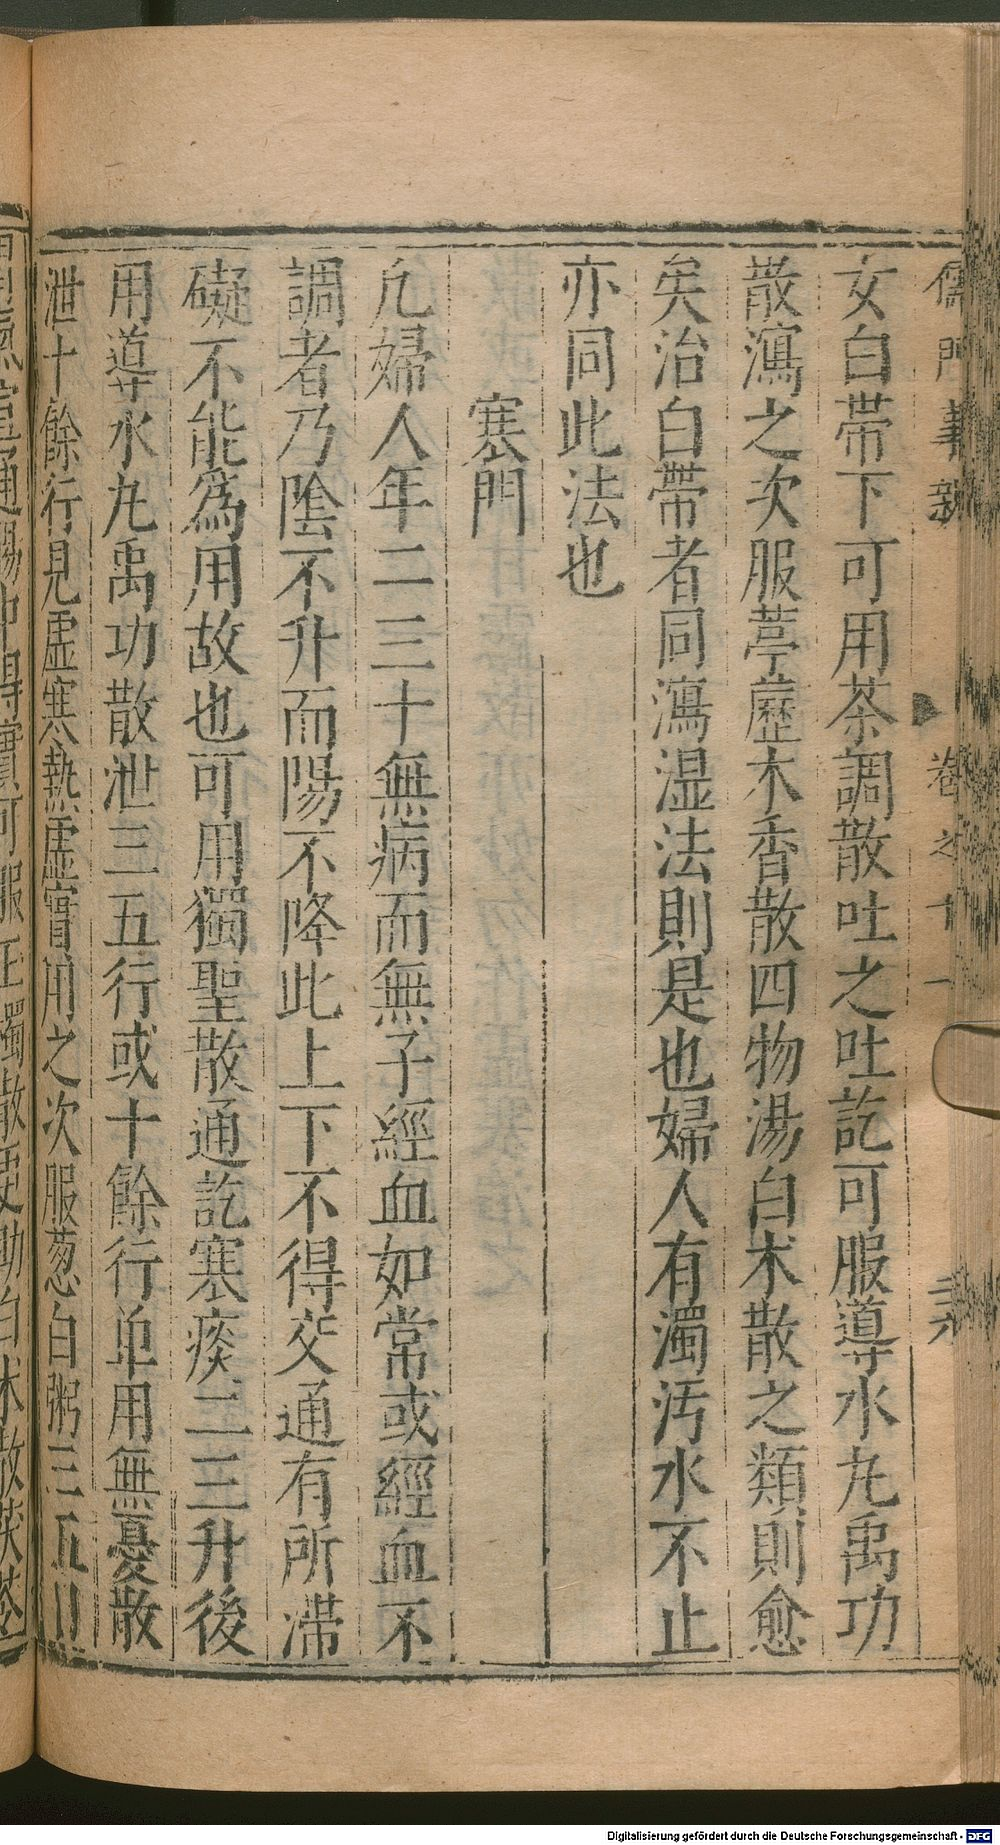 儒門事親 卷之十一 二六
女白帶下可用茶調散吐之吐訖可服導水丸禹功
散瀉之次服葶藶木香散四物湯白朮散之類則愈
矣治白帶者同瀉湿法則是也婦人有濁污水不止
亦同此法也
寒門
凡婦人年二三十無病而無子經血如常或經血不
調者乃陰不升而陽不降此上下不得交通有所滯
礙不能爲用故也可用獨聖散通訖寒痰二三升後
用導水丸禹功散泄三五行或十餘行单用無憂散
泄十餘行見虛寒熱虛實用之次服葱白粥三五日
Digitalisierung gefördert durch die Deutsche Forschungsgemeinschaft - DFG